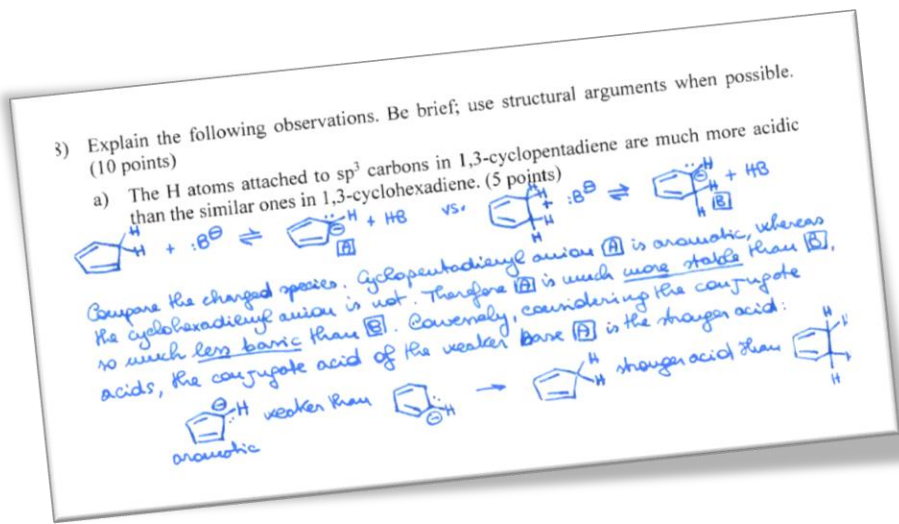 3) Explain the following observations. Be brief; use structural arguments when possible.
(10 points)
a) The H atoms attached to sp³ carbons in 1,3-cyclopentadiene are much more acidic
than the similar ones in 1,3-cyclohexadiene. (5 points)
H H + :B⊖ ⇌ ⊖ H + HB A vs. H H H H + :B⊖ ⇌ ⊖ H H H + HB B
Compare the charged species. Cyclopentadienyl anion A is aromatic, whereas
the cyclohexadienyl anion is not. Therefore A is much more stable than B,
so much less basic than B. Conversely, considering the conjugate
acids, the conjugate acid of the weaker base A is the stronger acid:
⊖ H weaker than ⊖ H → H H stronger acid than H H H
aromatic